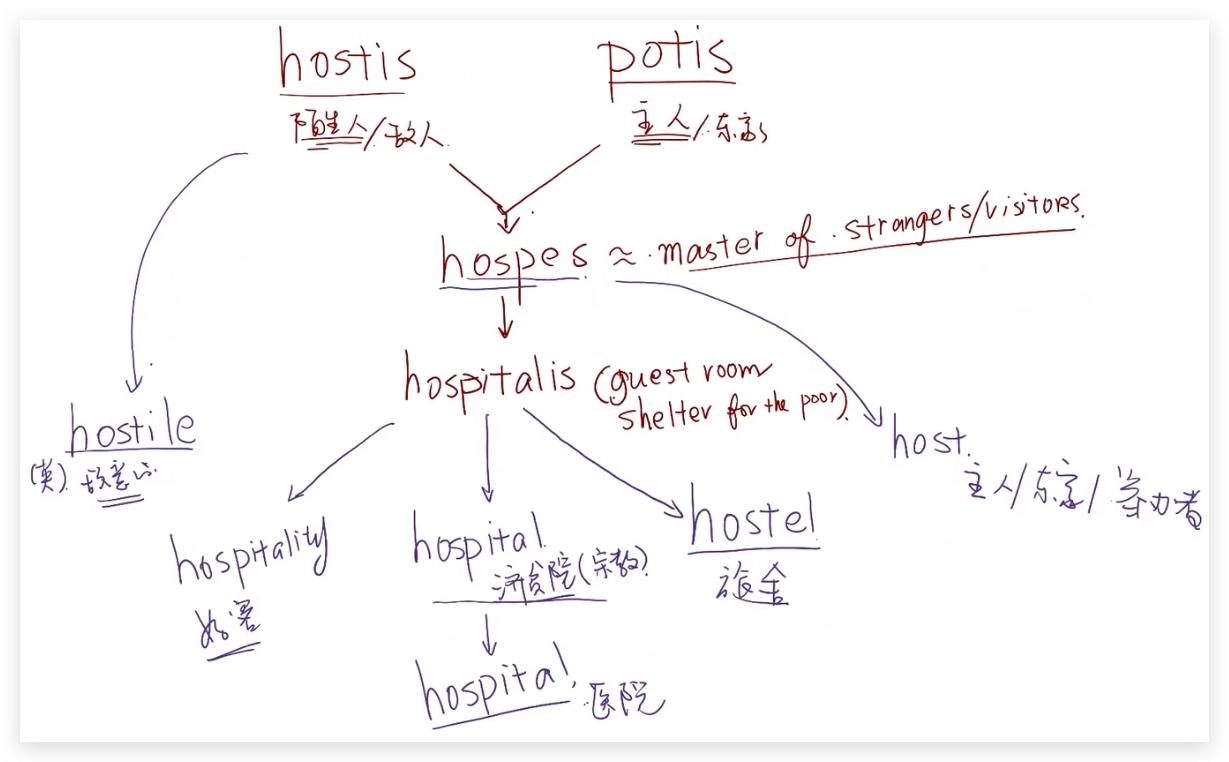 hostis
陌生人/敌人
potis
主人/东家
hospes ≈ master of strangers/visitors.
hospitalis (guest room
shelter for the poor)
hostile
(英) 敌意的
host.
主人/东家/筹办者
hospitality
好客
hospital
济贫院(宗教)
hostel
旅舍
hospital
医院